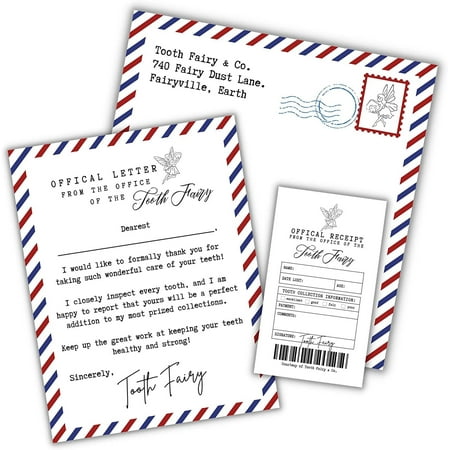 Tooth Fairy & Co.
740 Fairy Dust Lane.
Fairyville, Earth
OFFICAL LETTER
FROM THE OFFICE
OF THE Tooth Fairy
Dearest
,
I would like to formally thank you for
taking such wonderful care of your teeth!
I closely inspect every tooth, and I am
happy to report that yours will be a perfect
addition to my most prized collections.
Keep up the great work at keeping your teeth
healthy and strong!
Sincerely,
Tooth Fairy
OFFICAL RECEIPT
FROM THE OFFICE OF THE
Tooth Fairy
NAME:
DATE LOST: AGE:
TOOTH COLLECTION INFORMATION:
excellent good fair poor
PAYMENT:
COMMENTS:
SIGNATURE: Tooth Fairy
Courtesy of Tooth Fairy & Co.